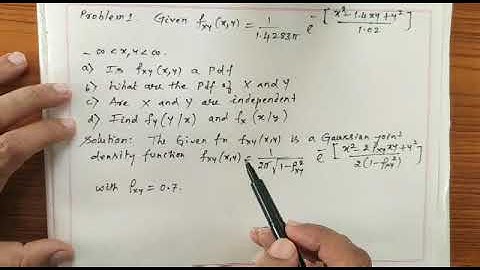 Problem 1 Given fxy(x,y) = 1/1.4283π e^-[x²-1.4xy+y²/1.02]
-∞<x,y<∞.
a) Is fxy(x,y) a Pdf
b) What are the Pdf of X and Y
c) Are X and Y are independent
d) Find fy(y/x) and fx(x/y)
Solution: The Given fn fxy(x,y) is a Gaussian joint
density function fxy(x,y) = 1/2π√1-ρ²xy e^-[x²-2ρxy xy+y²/2(1-ρ²xy)]
with ρxy = 0.7.